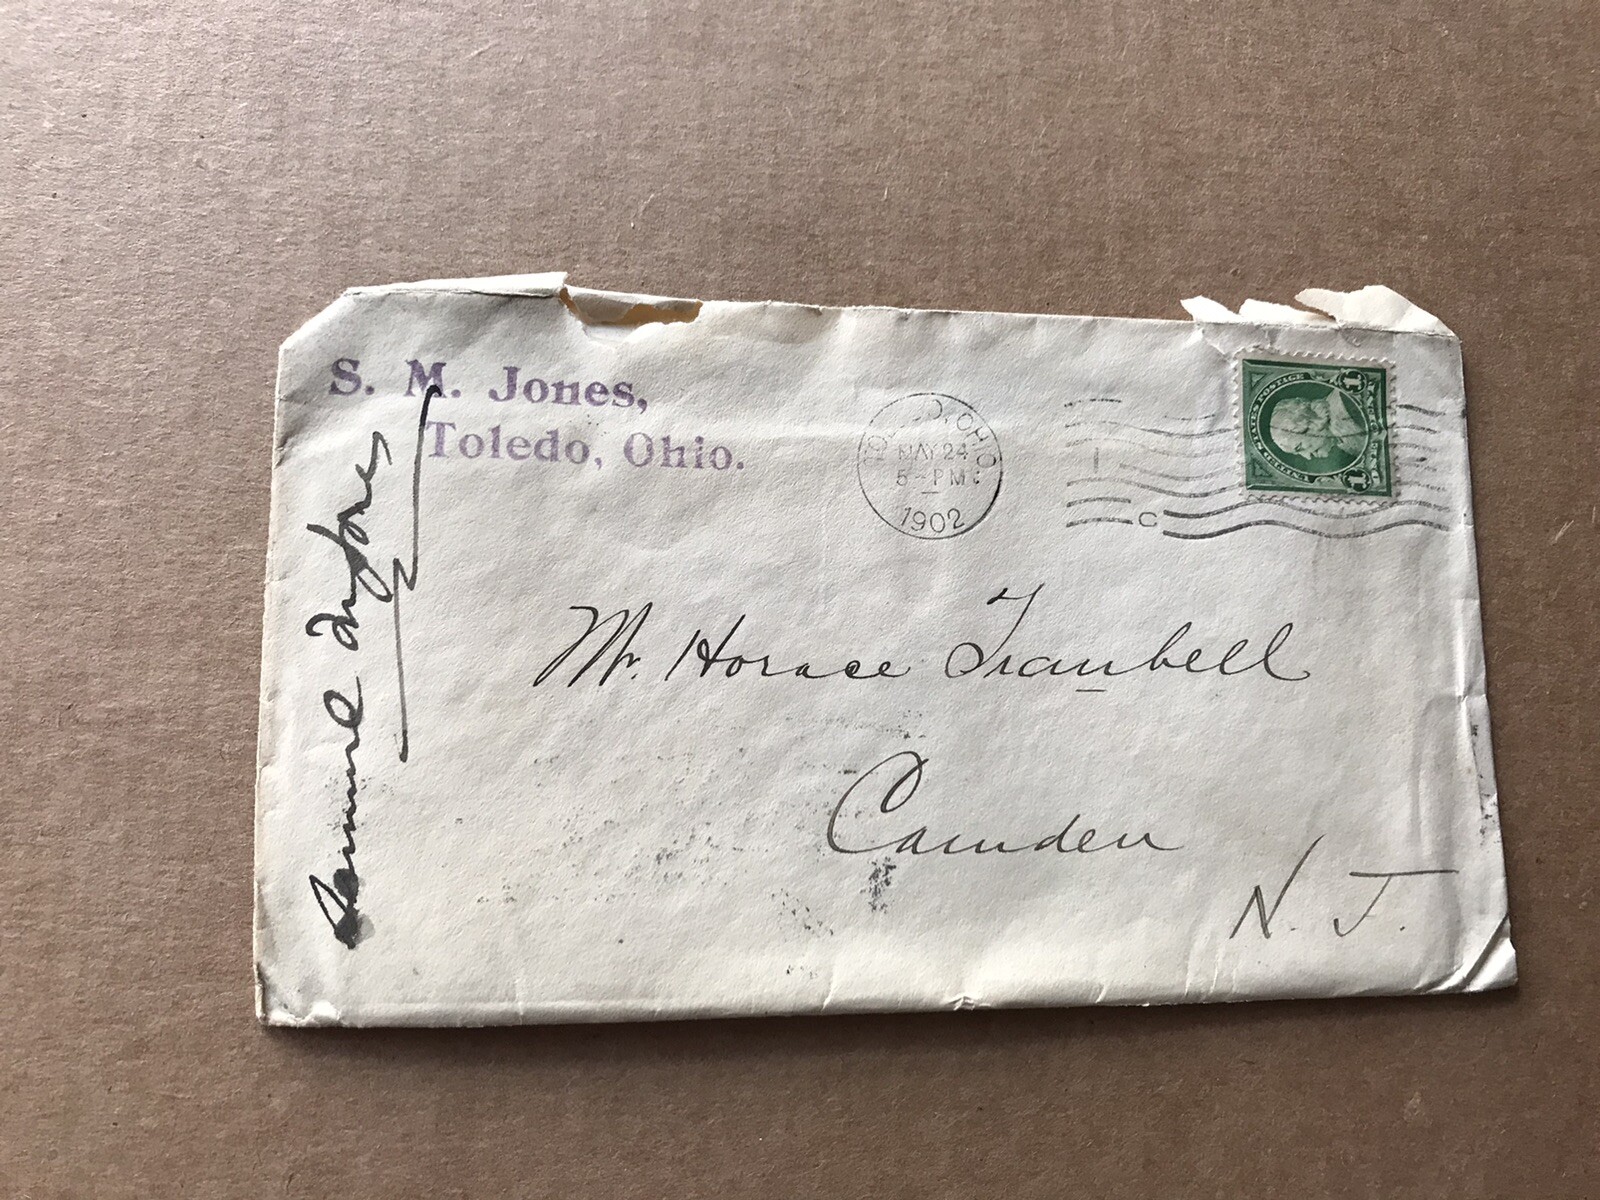 S. M. Jones,
Toledo, Ohio.
TOLEDO, OHIO
MAY 24
5-PM
1902
C
UNITED STATES POSTAGE
1
1
Mr. Horace Traubell
Camden
N. J.
Samuel M Jones